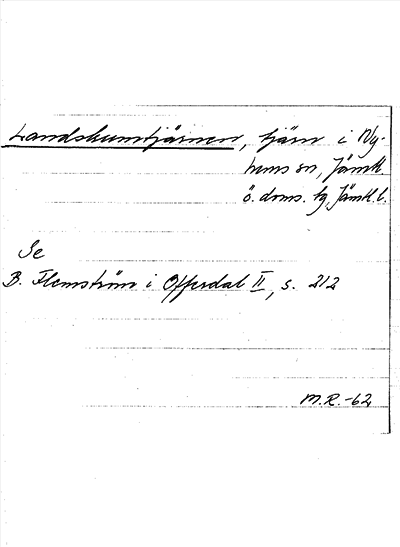 Landskumtjärnen, tjärn i Ny-
hems sn, Jämtl.
ö. doms. tg, Jämtl. l.
Se
B. Flemström i Offerdal II, s. 212
M.R.-62